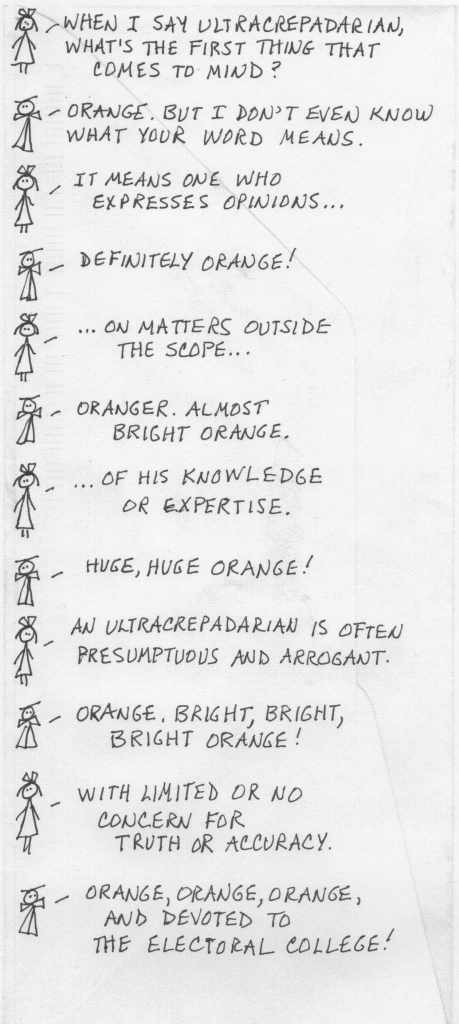 WHEN I SAY ULTRACREPADARIAN,
WHAT'S THE FIRST THING THAT
COMES TO MIND?
ORANGE. BUT I DON'T EVEN KNOW
WHAT YOUR WORD MEANS.
IT MEANS ONE WHO
EXPRESSES OPINIONS...
DEFINITELY ORANGE!
...ON MATTERS OUTSIDE
THE SCOPE...
ORANGER. ALMOST
BRIGHT ORANGE.
...OF HIS KNOWLEDGE
OR EXPERTISE.
HUGE, HUGE ORANGE!
AN ULTRACREPADARIAN IS OFTEN
PRESUMPTUOUS AND ARROGANT.
ORANGE. BRIGHT, BRIGHT,
BRIGHT ORANGE!
WITH LIMITED OR NO
CONCERN FOR
TRUTH OR ACCURACY.
ORANGE, ORANGE, ORANGE,
AND DEVOTED TO
THE ELECTORAL COLLEGE!